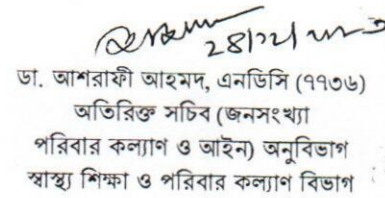 ডা. আশরাফী আহমদ, এনডিসি (৭৭৩৬)
অতিরিক্ত সচিব (জনসংখ্যা
পরিবার কল্যাণ ও আইন) অনুবিভাগ
স্বাস্থ্য শিক্ষা ও পরিবার কল্যাণ বিভাগ